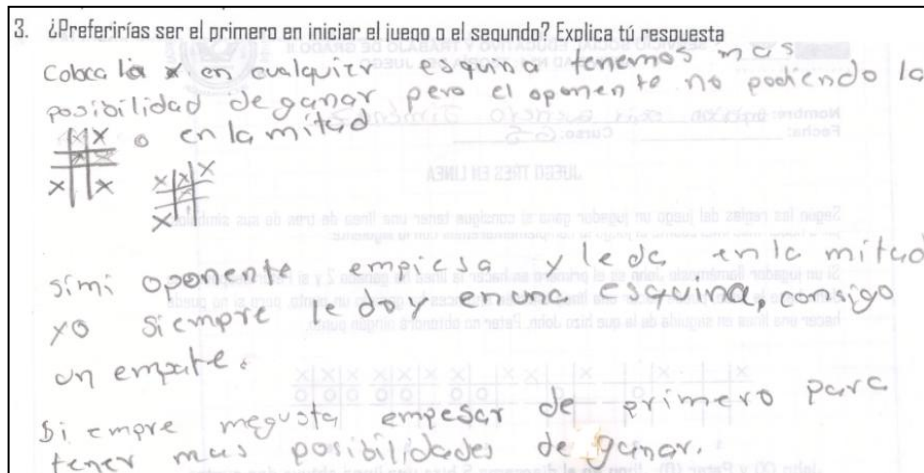 3. ¿Preferirías ser el primero en iniciar el juego o el segundo? Explica tú respuesta
Coloca la x en cualquier esquina tenemos mas
posibilidad de ganar pero el oponente no podiendo lo
o en la mitad
X X
X X
X X X
X
simi oponente empiesa y le da en la mitad
yo siempre le doy e una esquina, consigo
un empate.
Siempre megusta empesar de primero para
tener mas posibilidades de ganar.